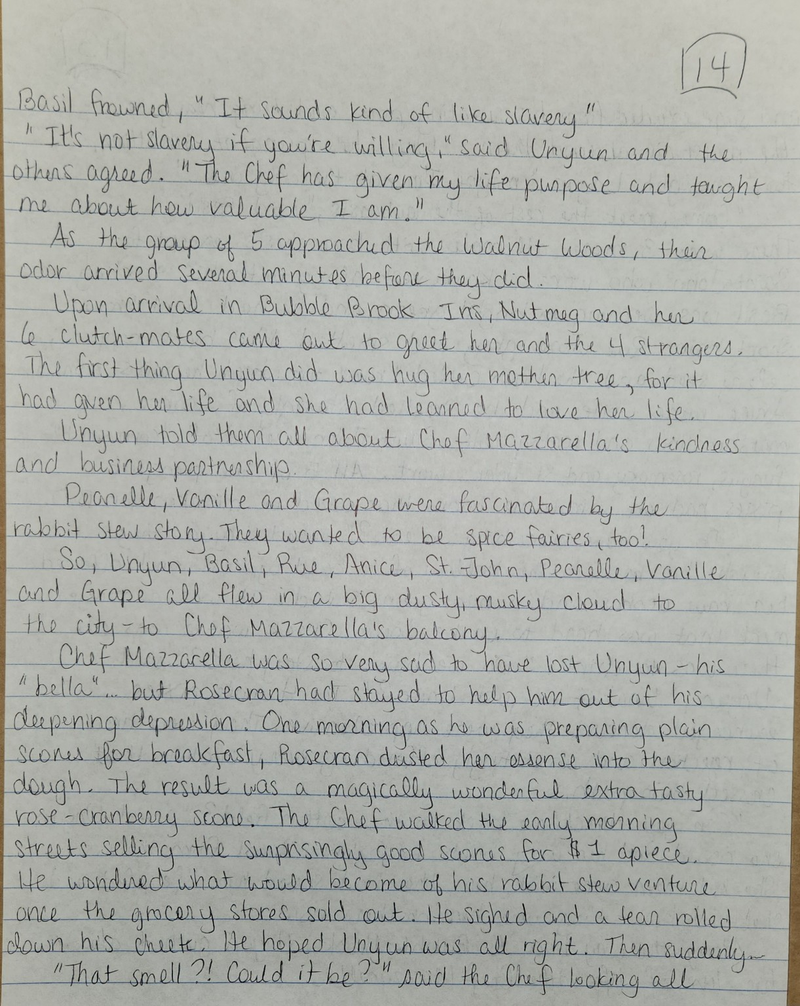 14
Basil frowned, "It sounds kind of like slavery"
"It's not slavery if you're willing," said Unyun and the
others agreed. "The Chef has given my life purpose and taught
me about how valuable I am."
As the group of 5 approached the Walnut Woods, their
odor arrived several minutes before they did.
Upon arrival in Bubble Brook Iris, Nutmeg and her
6 clutch-mates came out to greet her and the 4 strangers.
The first thing Unyun did was hug her mother tree, for it
had given her life and she had learned to love her life.
Unyun told them all about Chef Mazzarella's kindness
and business partnership.
Pearelle, Vanille and Grape were fascinated by the
rabbit stew story. They wanted to be spice fairies, too!
So, Unyun, Basil, Rue, Anice, St. John, Pearelle, Vanille
and Grape all flew in a big dusty, musky cloud to
the city - to Chef Mazzarella's balcony.
Chef Mazzarella was so very sad to have lost Unyun - his
"bella"... but Rosecran had stayed to help him out of his
deepening depression. One morning as he was preparing plain
scones for breakfast, Rosecran dusted her essense into the
dough. The result was a magically wonderful extra tasty
rose-cranberry scone. The Chef walked the early morning
streets selling the surprisingly good scones for $1 apiece.
He wondered what would become of his rabbit stew venture
once the grocery stores sold out. He sighed and a tear rolled
down his cheek. He hoped Unyun was all right. Then suddenly-
"That smell?! Could it be?" said the Chef looking all